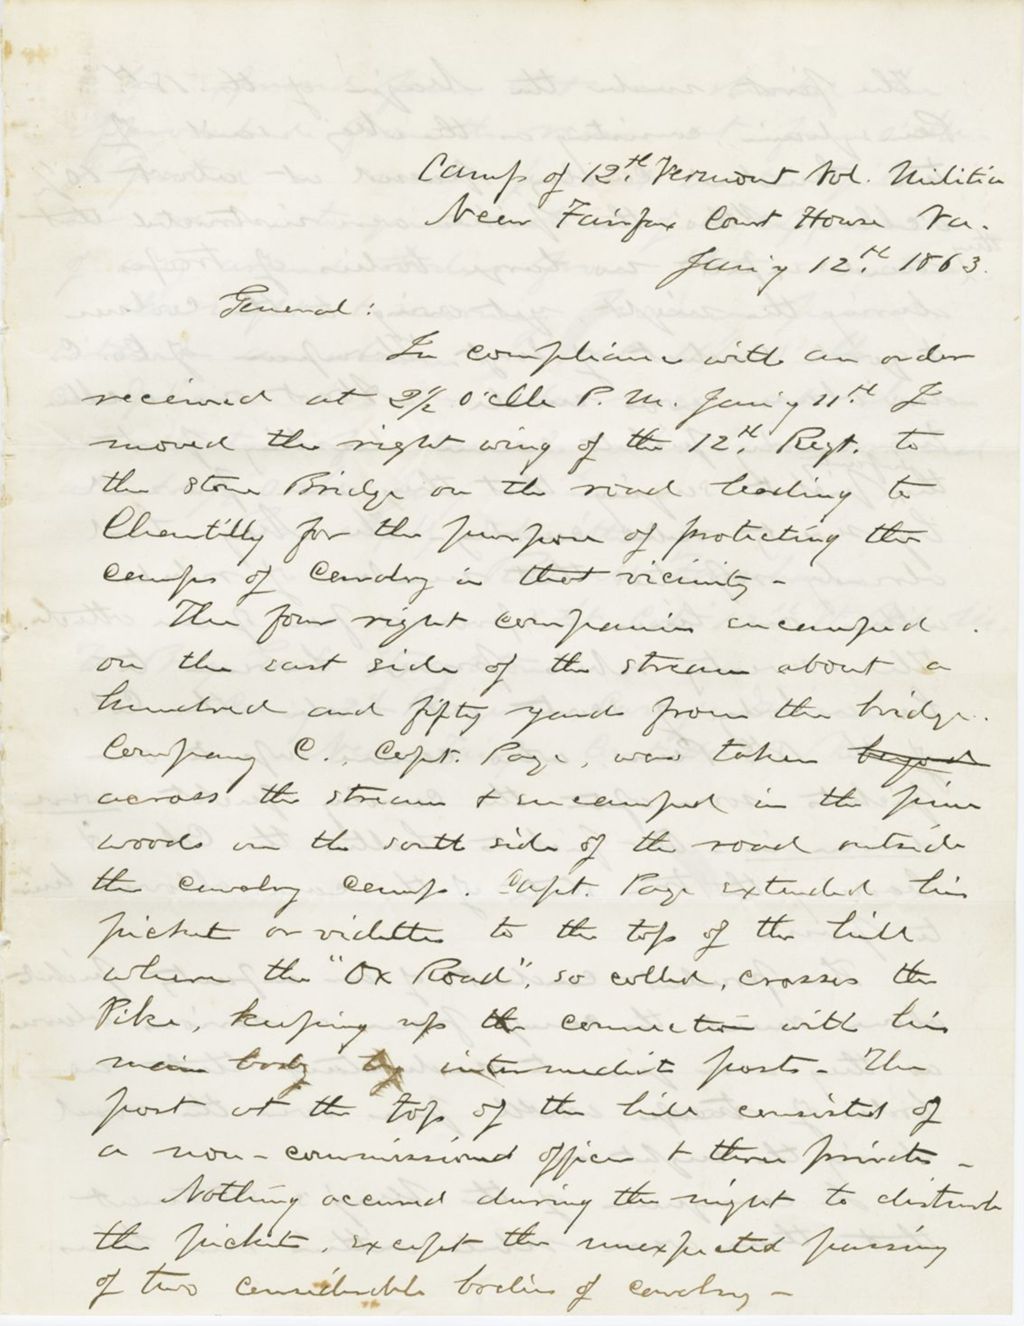 Camp of 12th. Vermont Vol. Militia
Near Fairfax Court House Va.
Jan'y 12th. 1863.
General:
In compliance with an order
received at 2½ O'clk P. M. Jan'y 11th I
moved the right wing of the 12th. Regt. to
the Stone Bridge on the road leading to
Chantilly for the purpose of protecting the
camps of Cavalry in that vicinity -
The four right companies encamped
on the east side of the stream about a
hundred and fifty yards from the bridge.
Company C., Capt. Page, was taken beyond
across the stream & encamped in the pine
woods on the south side of the road outside
the cavalry camp. Capt. Page extended his
picket or vidette to the top of the hill
where the "Ox Road", so called, crosses the
Pike, keeping up the connection with his
main body by intermediate posts - The
post at the top of the hill consisted of
a non-commissioned officer & three privates -
Nothing occured during the night to disturb
the pickets, except the unexpected passing
of two considerable bodies of cavalry -